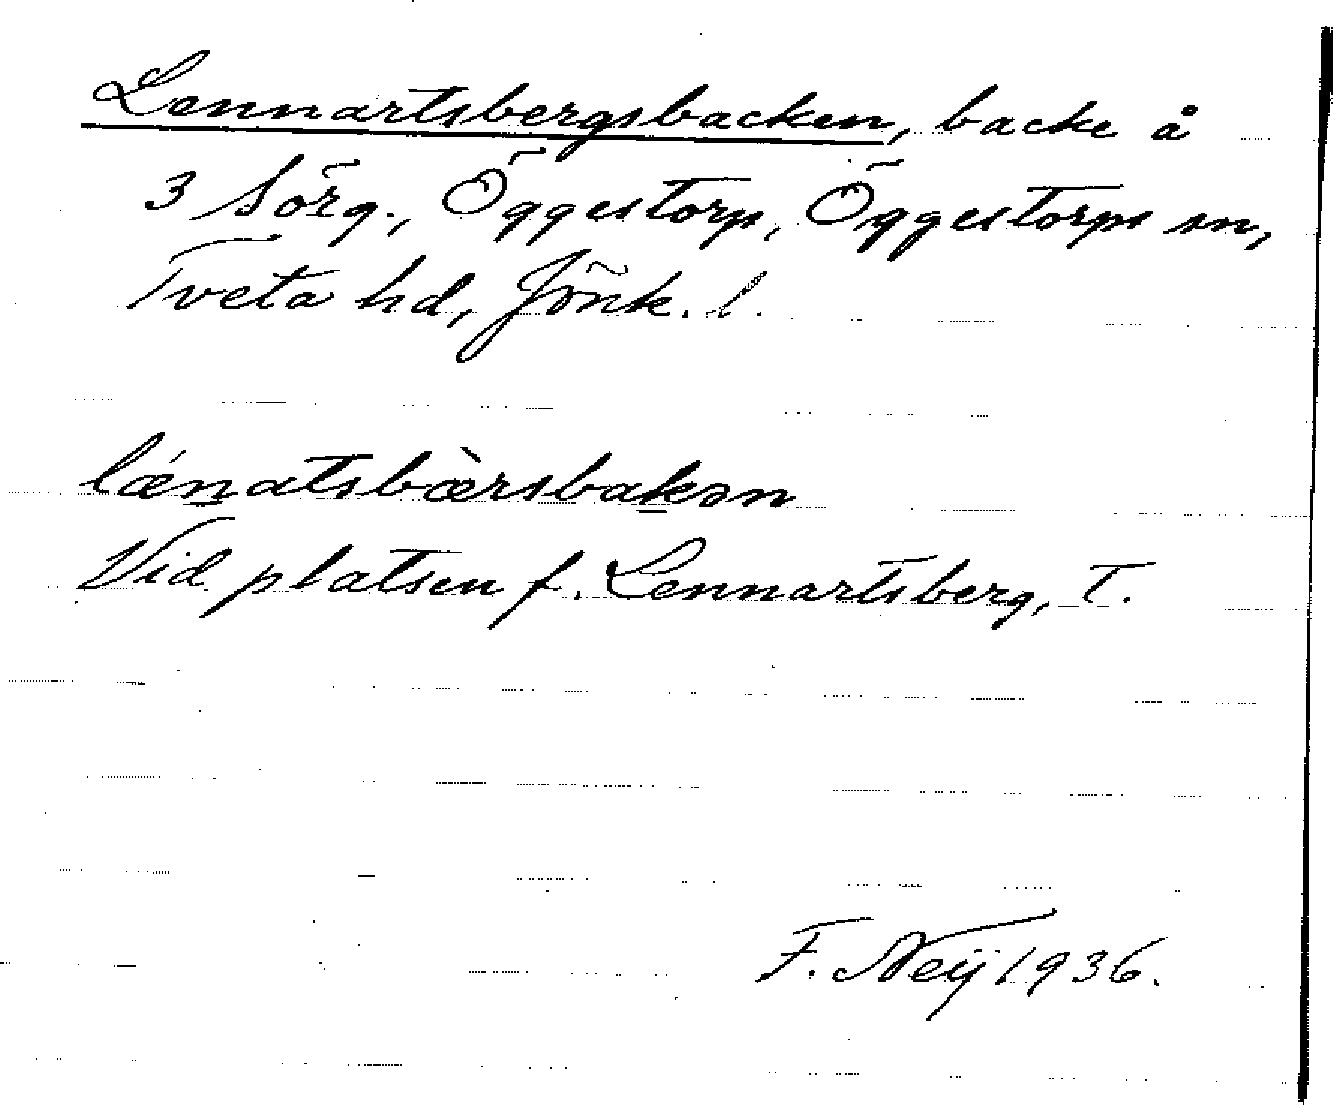 Lennartsbergsbacken, backe å
3 Sörg., Öggestorp, Öggestorps sn,
Tveta hd, Jönk. l.
lǽnatsbæ̀rsbakən
Vid platsen f. Lennartsberg, T.
F. Neij 1936.